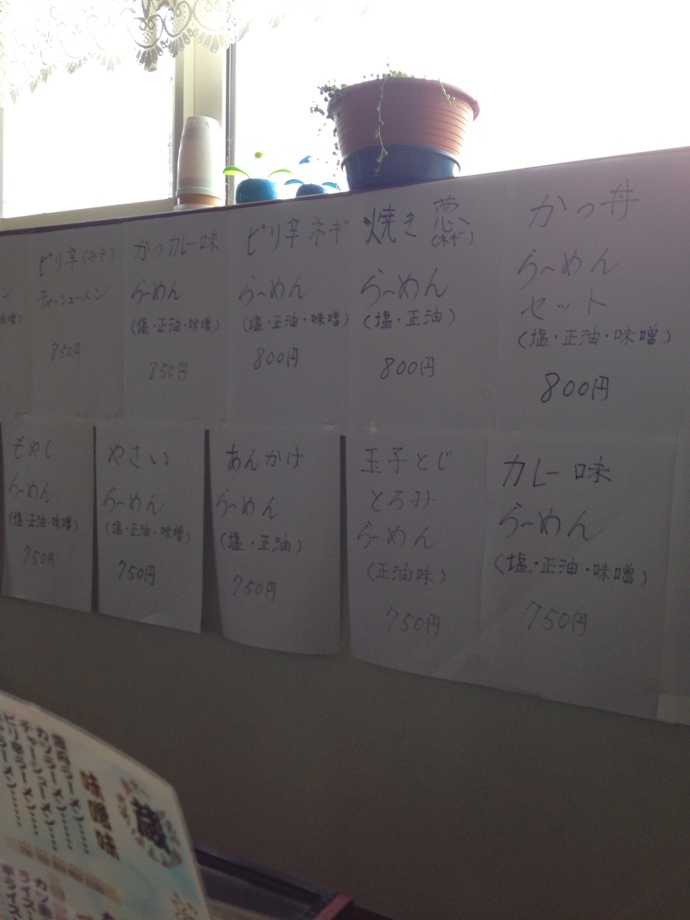 ン
味噌)
ピリ辛(みそ)
チャーシューメン
850円
かつカレー味
らーめん
(塩・正油・味噌)
850円
ピリ辛ネギ
らーめん
(塩・正油・味噌)
800円
焼き葱
(ネギ)
らーめん
(塩・正油)
800円
かつ丼
らーめん
セット
(塩・正油・味噌)
800円
もやし
らーめん
(塩・正油・味噌)
750円
やさい
らーめん
(塩・正油・味噌)
750円
あんかけ
らーめん
(塩・正油)
750円
玉子とじ
とろみ
らーめん
(正油味)
750円
カレー味
らーめん
(塩・正油・味噌)
750円
味噌味
カツラーメン
チャーシューメン
ピリ辛ラーメン